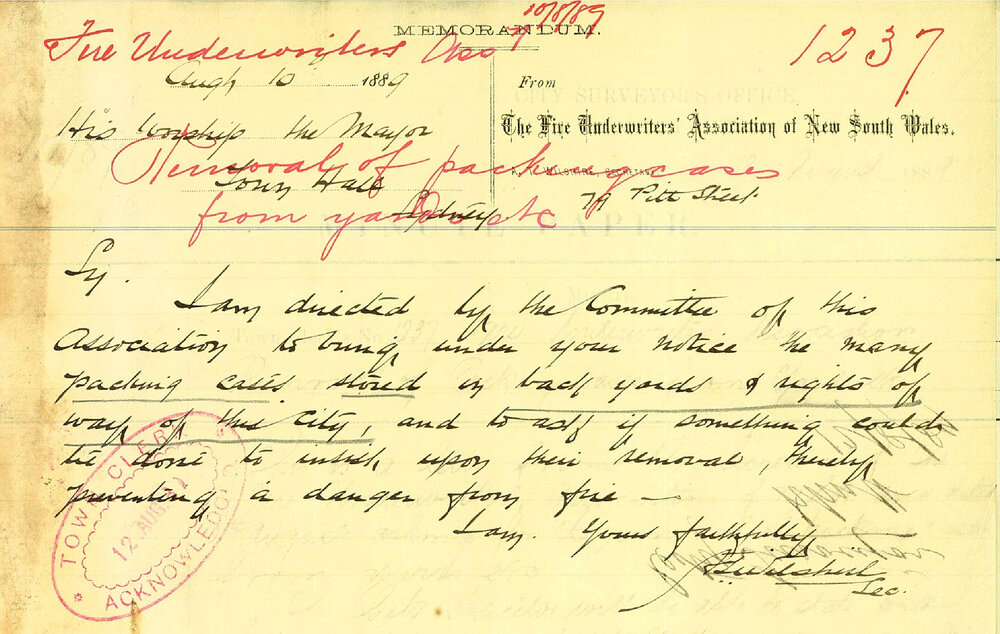 10/8/89
MEMORANDUM.
Fire Underwriters Asso
1237
Augt 10 1889
From
His Worship the Mayor
The Fire Underwriters' Association of New South Wales.
Removal of packing cases
SECRETARY
Town Hall
79 Pitt Street
from yards etc
Sydney
Sir.
I am directed by the Committee of this
Association to bring under your notice the many
packing cases stored in back yards & rights of
way of this City, and to ask if something could
be done to insist upon their removal, thereby
preventing a danger from fire —
I am. Yours faithfully
Sec.
TOWN CLERK
12 AUG
ACKNOWLEDGED